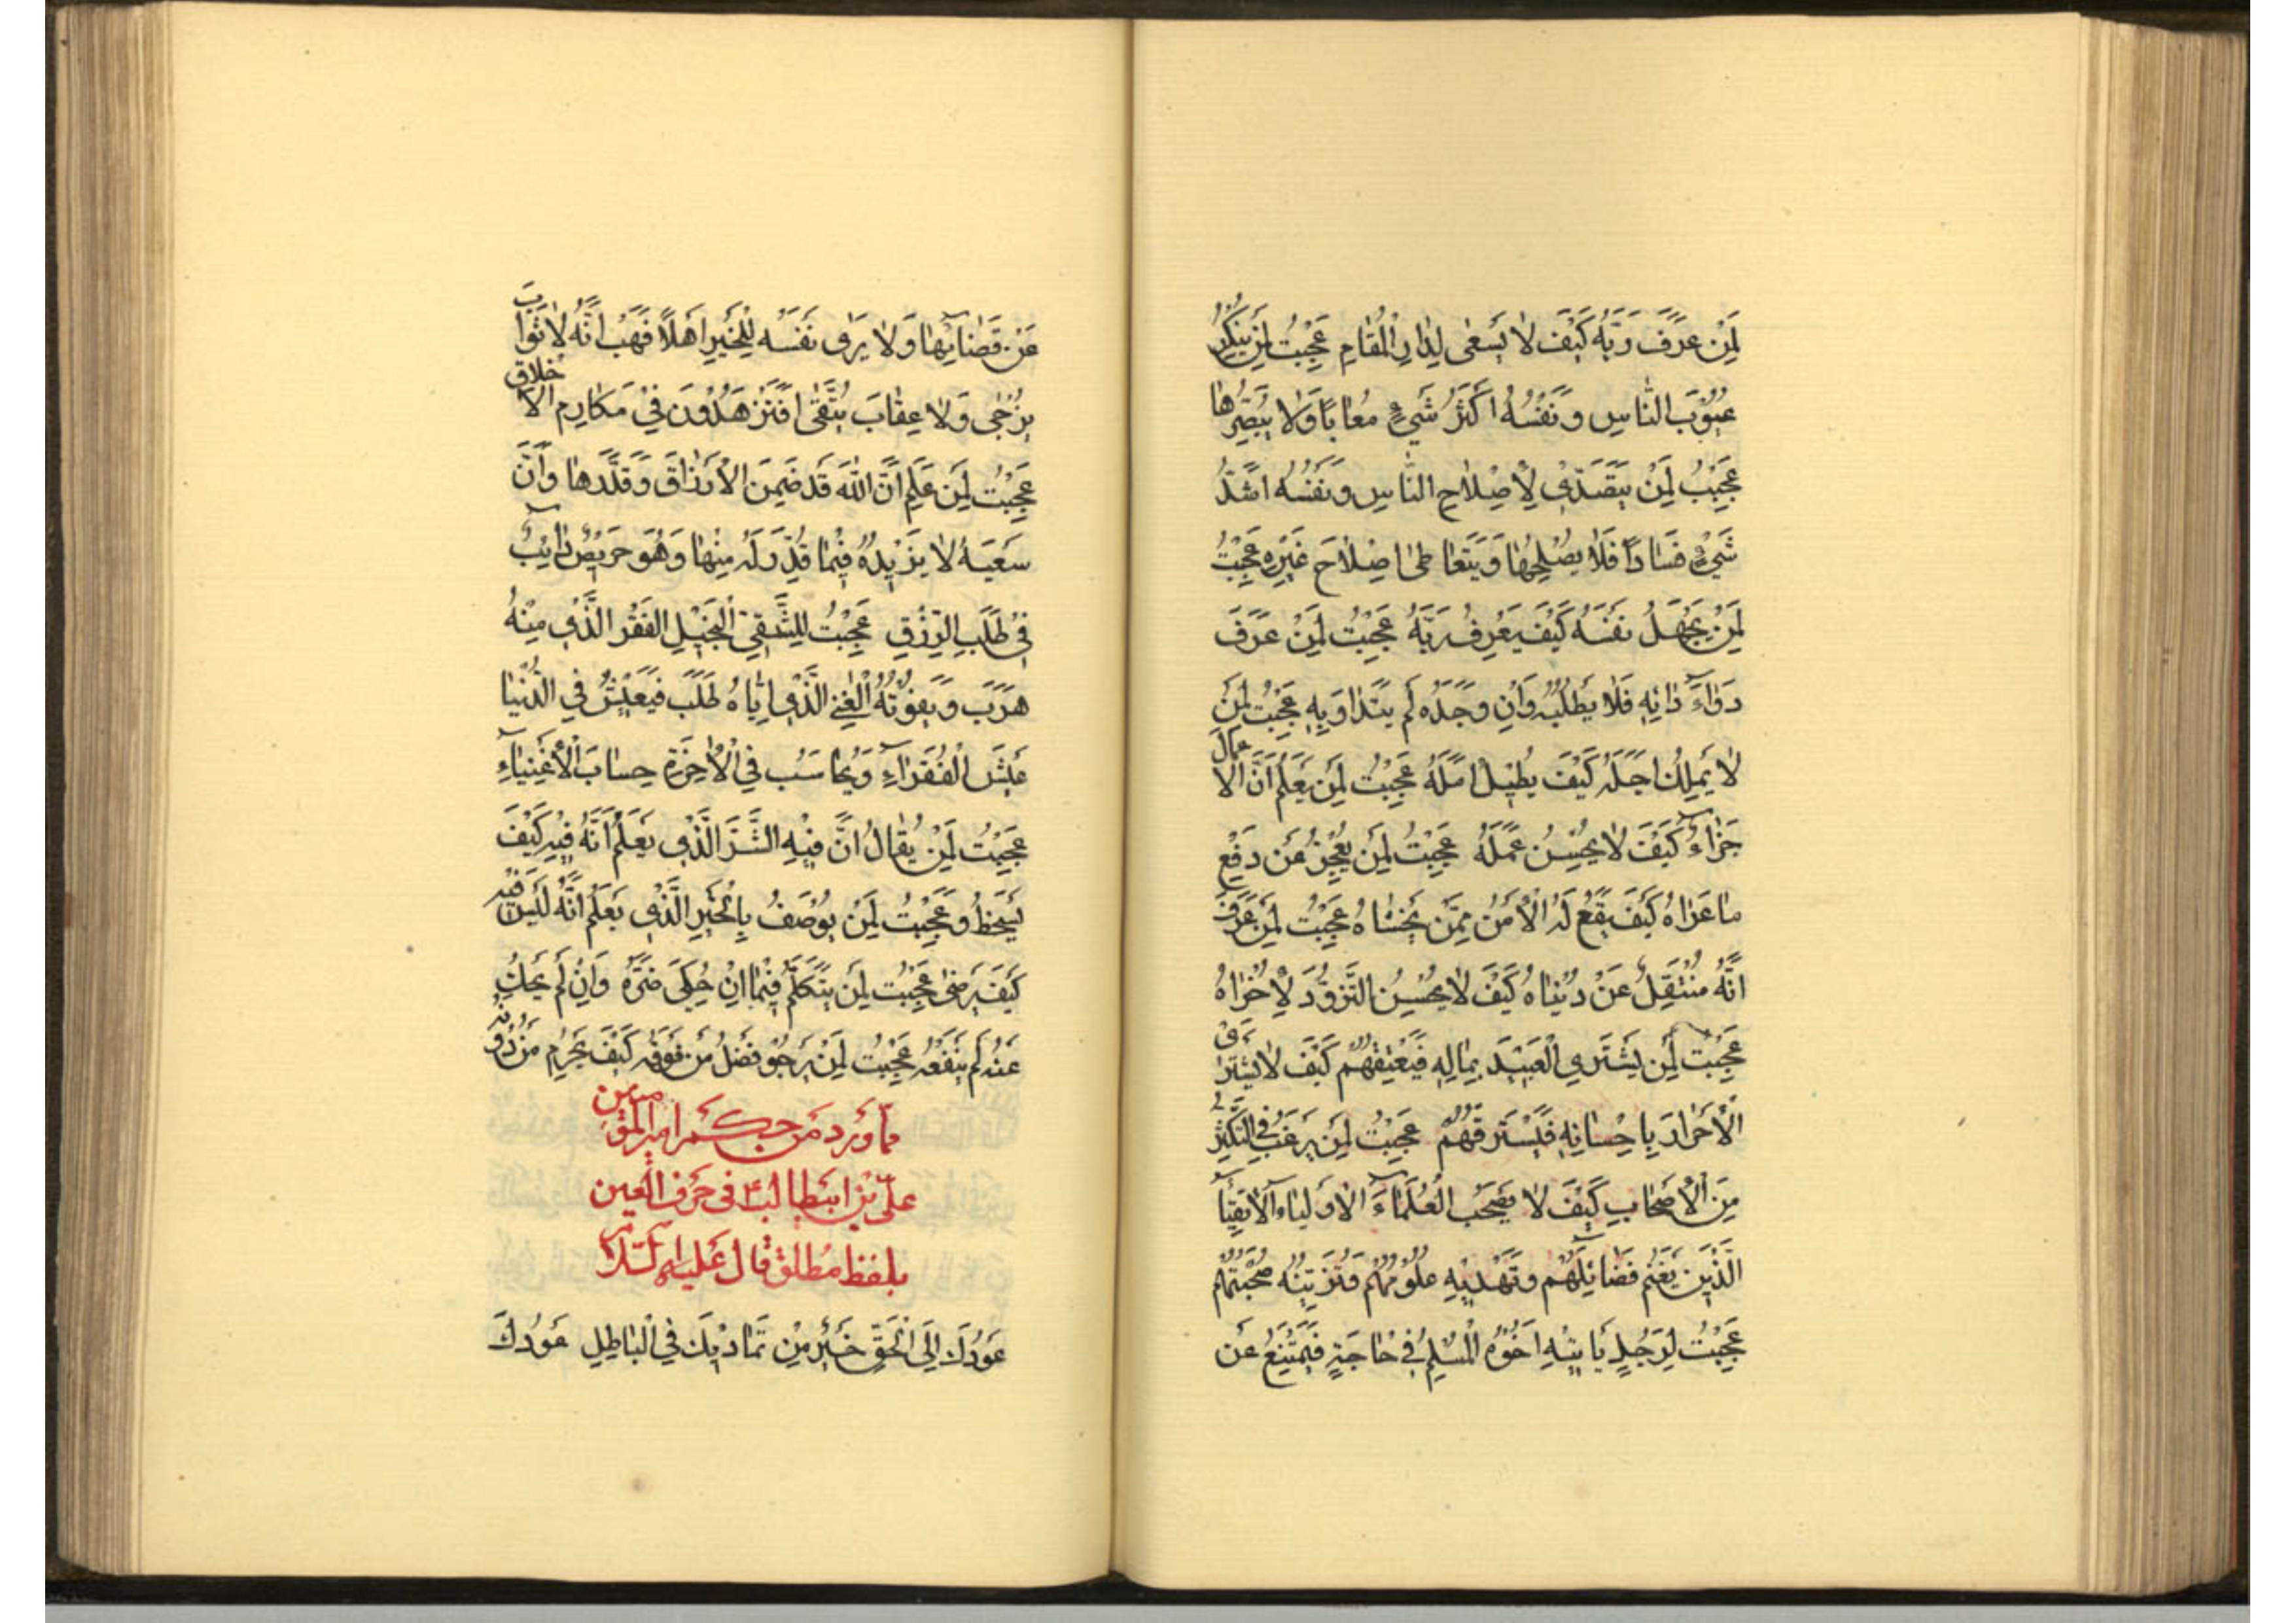 لِمَنْ عَرَفَ رَبَّهُ كَيْفَ لَا يَسْعٰى لِدَارِ الْمُقَامِ عَجِبْتُ لِمَنْ يُنْكِرُ
عُيُوْبَ النَّاسِ وَنَفْسُهُ اَكْثَرُ شَيْءٍ مُعَابًا وَلَا يُبْصِرُهَا
عَجِبْتُ لِمَنْ يَتَصَدّٰى لِاِصْلَاحِ النَّاسِ وَنَفْسُهُ اَشَدُّ
شَيْءٍ فَسَادًا فَلَا يُصْلِحُهَا وَيَتَعَاطٰى اِصْلَاحَ غَيْرِهِ عَجِبْتُ
لِمَنْ يَجْهَلُ نَفْسَهُ كَيْفَ يَعْرِفُ رَبَّهُ عَجِبْتُ لِمَنْ عَرَفَ
دَوَاءَ دَائِهِ فَلَا يَطْلُبُهُ وَاِنْ وَجَدَهُ لَمْ يَتَدَاوَ بِهِ عَجِبْتُ لِمَنْ
لَا يَمْلِكُ اَجَلَهُ كَيْفَ يُطِيْلُ اَمَلَهُ عَجِبْتُ لِمَنْ يَعْلَمُ اَنَّ الْاَعْمَالِ
جَزَاءً كَيْفَ لَا يُحْسِنُ عَمَلَهُ عَجِبْتُ لِمَنْ يَعْجِزُ عَنْ دَفْعِ
مَا عَرَاهُ كَيْفَ يَقَعُ لَهُ الْاَمْنُ مِمَّنْ يَخْشَاهُ عَجِبْتُ لِمَنْ عَرَفَ
اَنَّهُ مُنْتَقِلٌ عَنْ دُنْيَاهُ كَيْفَ لَا يُحْسِنُ التَّزَوُّدَ لِاُخْرَاهُ
عَجِبْتُ لِمَنْ يَشْتَرِي الْعَبِيْدَ بِمَالِهِ فَيُعْتِقُهُمْ كَيْفَ لَا يَشْتَرِى
الْاَحْرَارَ بِاِحْسَانِهِ فَيَسْتَرِقُّهُمْ عَجِبْتُ لِمَنْ يَرْغَبُ فِي التَّكَثُّرِ
مِنَ الْاَصْحَابِ كَيْفَ لَا يَصْحَبُ الْعُلَمَاءَ الْاَوْلِيَاءَ الْاَتْقِيَاءَ
الَّذِيْنَ يَغْنَمُ فَضَائِلَهُمْ وَتَهْدِيْهِ عُلُوْمُهُمْ وَتُزَيِّنُهُ صُحْبَتُهُمْ
عَجِبْتُ لِرَجُلٍ يَأْتِيْهِ اَخُوْهُ الْمُسْلِمُ فِيْ حَاجَةٍ فَيَمْتَنِعُ عَنْ
عَنْ قَضَائِهَا وَلَا يَرٰى نَفْسَهُ لِلْخَيْرِ اَهْلًا فَهَبْ اَنَّهُ لَا ثَوَابَ
يُرْجٰى وَلَا عِقَابَ يُتَّقٰى اَفَتَزْهَدُوْنَ فِيْ مَكَارِمِ الْاَخْلَاقِ
عَجِبْتُ لِمَنْ عَلِمَ اَنَّ اللّٰهَ قَدْ ضَمِنَ الْاَرْزَاقَ وَقَدَّرَهَا وَاَنَّ
سَعْيَهُ لَا يَزِيْدُهُ فِيْمَا قُدِّرَ لَهُ مِنْهَا وَهُوَ حَرِيْصٌ دَائِبٌ
فِيْ طَلَبِ الرِّزْقِ عَجِبْتُ لِلشَّقِيِّ الْبَخِيْلِ الْفَقْرُ الَّذِيْ مِنْهُ
هَرَبَ وَيَفُوْتُهُ الْغِنٰى الَّذِيْ اِيَّاهُ طَلَبَ فَيَعِيْشُ فِي الدُّنْيَا
عَيْشَ الْفُقَرَاءِ وَيُحَاسَبُ فِي الْاٰخِرَةِ حِسَابَ الْاَغْنِيَاءِ
عَجِبْتُ لِمَنْ يُقَالُ اَنَّ فِيْهِ الشَّرَّ الَّذِيْ يَعْلَمُ اَنَّهُ فِيْهِ كَيْفَ
يَسْخَطُ وَعَجِبْتُ لِمَنْ يُوْصَفُ بِالْخَيْرِ الَّذِيْ يَعْلَمُ اَنَّهُ لَيْسَ فِيْهِ
كَيْفَ يَرْضٰى عَجِبْتُ لِمَنْ يَتَكَلَّمُ فِيْمَا اِنْ حُكِيَ ضَرَّهُ وَاِنْ لَمْ يُحْكَ
عَنْهُ لَمْ يَنْفَعْهُ عَجِبْتُ لِمَنْ يَرْجُوْ فَضْلَ مَنْ فَوْقَهُ كَيْفَ يَحْرِمُ مَنْ دُوْنَهُ
مِمَّا وَرَدَ مِنْ حِكَمِ اَمِيْرِ الْمُؤْمِنِيْنَ
عَلِيّ بْنِ اَبِيْطَالِبٍ ع فِي حَرْفِ الْعَيْنِ
بِلَفْظِ مُطْلَقِ قَالَ عَلَيْهِ السَّلَامُ
عَوْدُكَ اِلَى الْحَقِّ خَيْرٌ مِنْ تَمَادِيْكَ فِي الْبَاطِلِ عَوْدُكَ